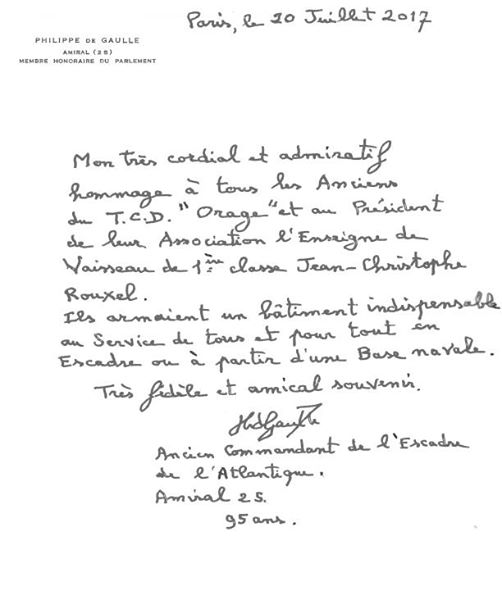 Paris, le 20 Juillet 2017
PHILIPPE DE GAULLE
AMIRAL (2S)
MEMBRE HONORAIRE DU PARLEMENT
Mon très cordial et admiratif
hommage à tous les Anciens
du T.C.D. "Orage" et au Président
de leur Association l'Enseigne de
Vaisseau de 1ère classe Jean-Christophe
Rouxel.
Ils armaient un bâtiment indispensable
au Service de tous et pour tout en
Escadre ou à partir d'une Base navale.
Très fidèle et amical souvenir.
PhdGaulle
Ancien Commandant de l'Escadre
de l'Atlantique.
Amiral 2S.
95 ans.